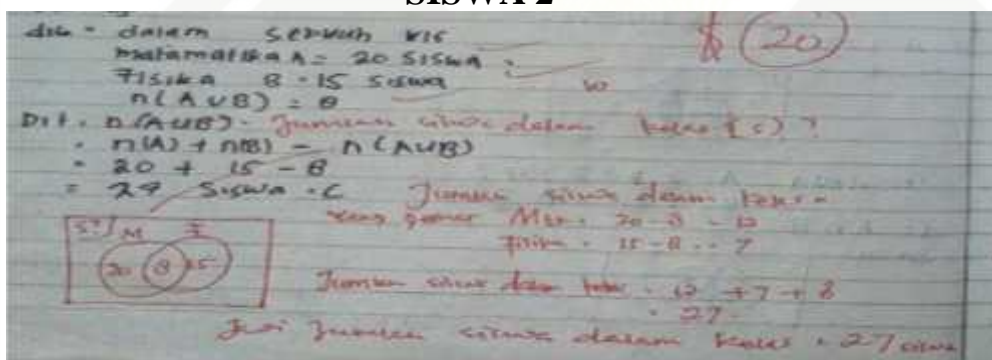 SISWA 2
dik = dalam sebuah kls
20
matamatika A = 20 SISWA
Fisika B = 15 siswa
10
n(A∪B) = 8
Dit. n(A∪B) = Jumlah siswa dalam kelas (s) ?
= n(A) + n(B) - n(A∪B)
= 20 + 15 - 8
= 27 Siswa = C
Jumlah siswa dalam kelas =
yang gemar Mat = 20 - 8 = 12
Fisika = 15 - 8 = 7
S M F
20 8 15
Jumlah siswa dalam kelas = 12 + 7 + 8
= 27
Jadi Jumlah siswa dalam kelas = 27 siswa